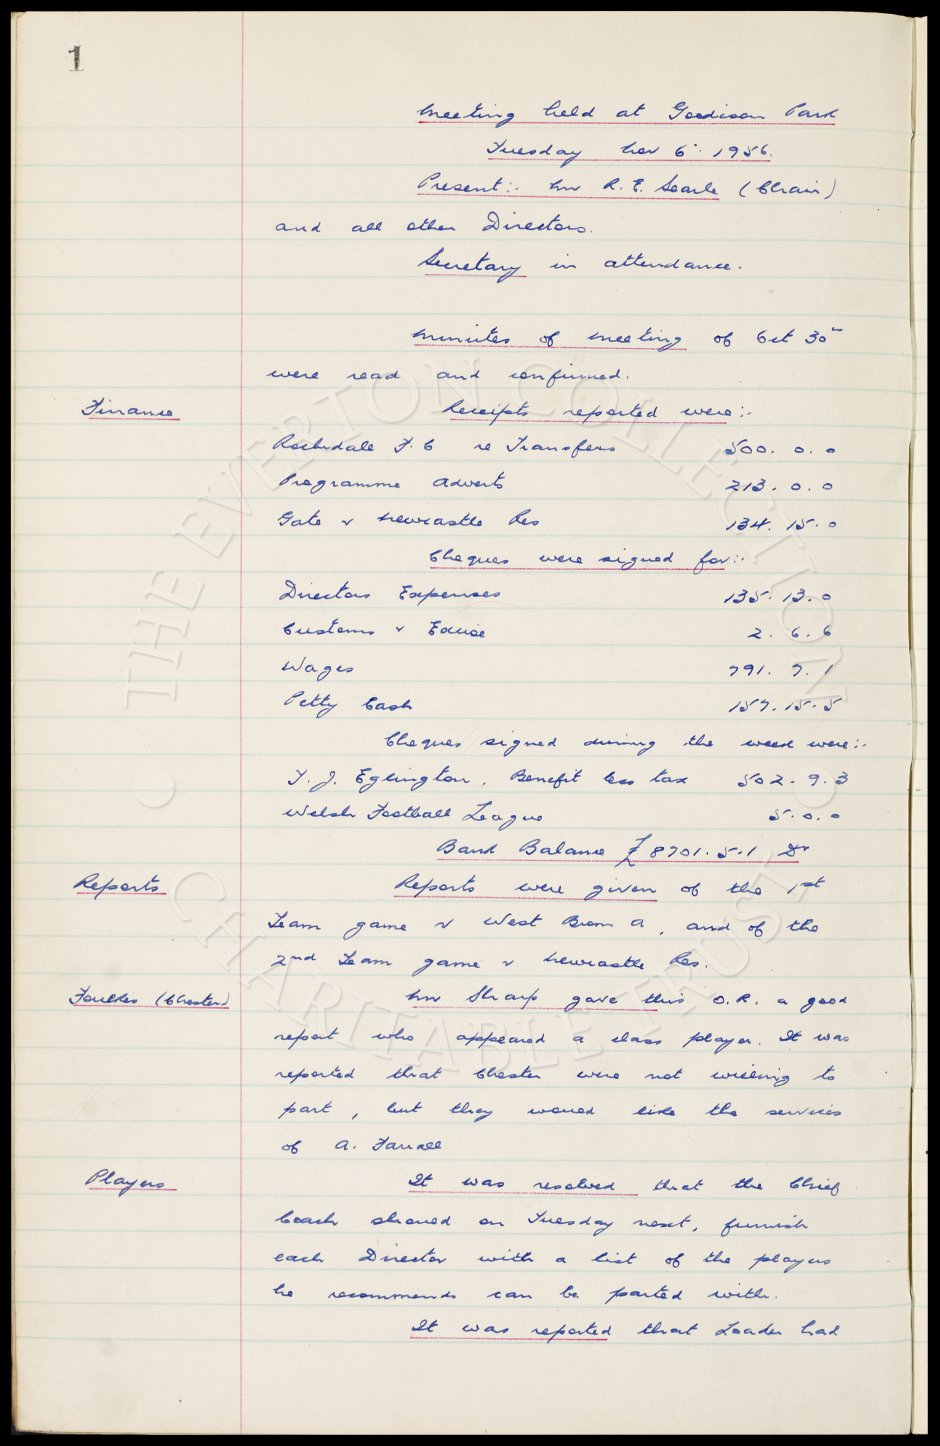 1
Meeting held at Goodison Park
Tuesday Nov 6th 1956.
Present:- Mr R. E. Searle (Chair)
and all other Directors.
Secretary in attendance.
Minutes of meeting of Oct 30th
were read and confirmed.
Finance Receipts reported were:-
Rochdale F. C re Transfers 500. 0. 0
Programme adverts 213. 0. 0
Gate v Newcastle Res 134. 15. 0
Cheques were signed for:-
Directors Expenses 135. 13. 0
Customs & Excise 2. 6. 6
Wages 791. 7. 1
Petty Cash 157. 15. 5
Cheques signed during the week were:-
T. J. Eglington. Benefit less tax 502. 9. 3
Welsh Football League 5. 0. 0
Bank Balance £8701. 5. 1 Dr
Reports Reports were given of the 1st
Team game v West Brom A, and of the
2nd Team game v Newcastle Res.
Foulkes (Chester) Mr Sharp gave this O. R. a good
report who appeared a class player. It was
reported that Chester were not willing to
part, but they would like the services
of A. Farrall
Players It was resolved that the Chief
Coach should on Tuesday next, furnish
each Director with a list of the players
he recommends can be parted with.
It was reported that Loader had
© THE EVERTON COLLECTION
CHARITABLE TRUST